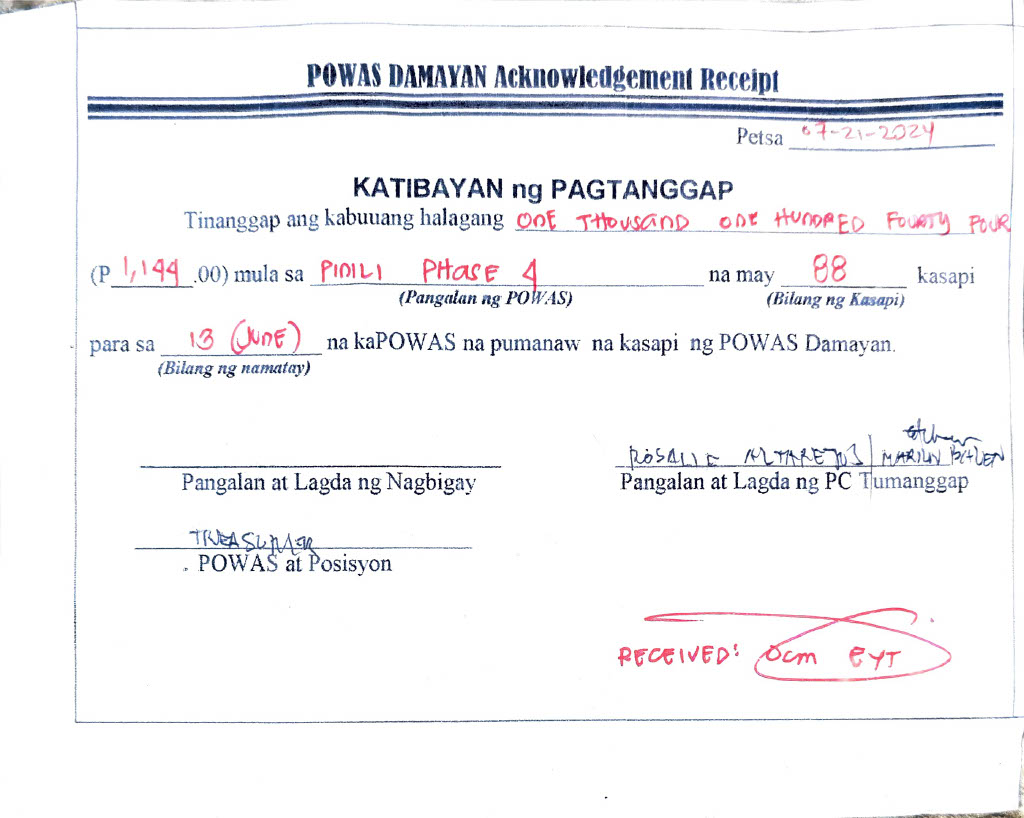 POWAS DAMAYAN Acknowledgement Receipt
Petsa 07-21-2024
KATIBAYAN ng PAGTANGGAP
Tinanggap ang kabuuang halagang ONE THOUSAND ONE HUNDRED FOURTY FOUR
(P 1,144 .00) mula sa PIDILI PHASE 4 na may 88 kasapi
(Pangalan ng POWAS) (Bilang ng Kasapi)
para sa 13 (JUNE) na kaPOWAS na pumanaw na kasapi ng POWAS Damayan.
(Bilang ng namatay)
ROSALIE ALTAREJOS MARILYN
Pangalan at Lagda ng Nagbigay Pangalan at Lagda ng PC Tumanggap
TREASURER
. POWAS at Posisyon
RECEIVED: OCM EYT